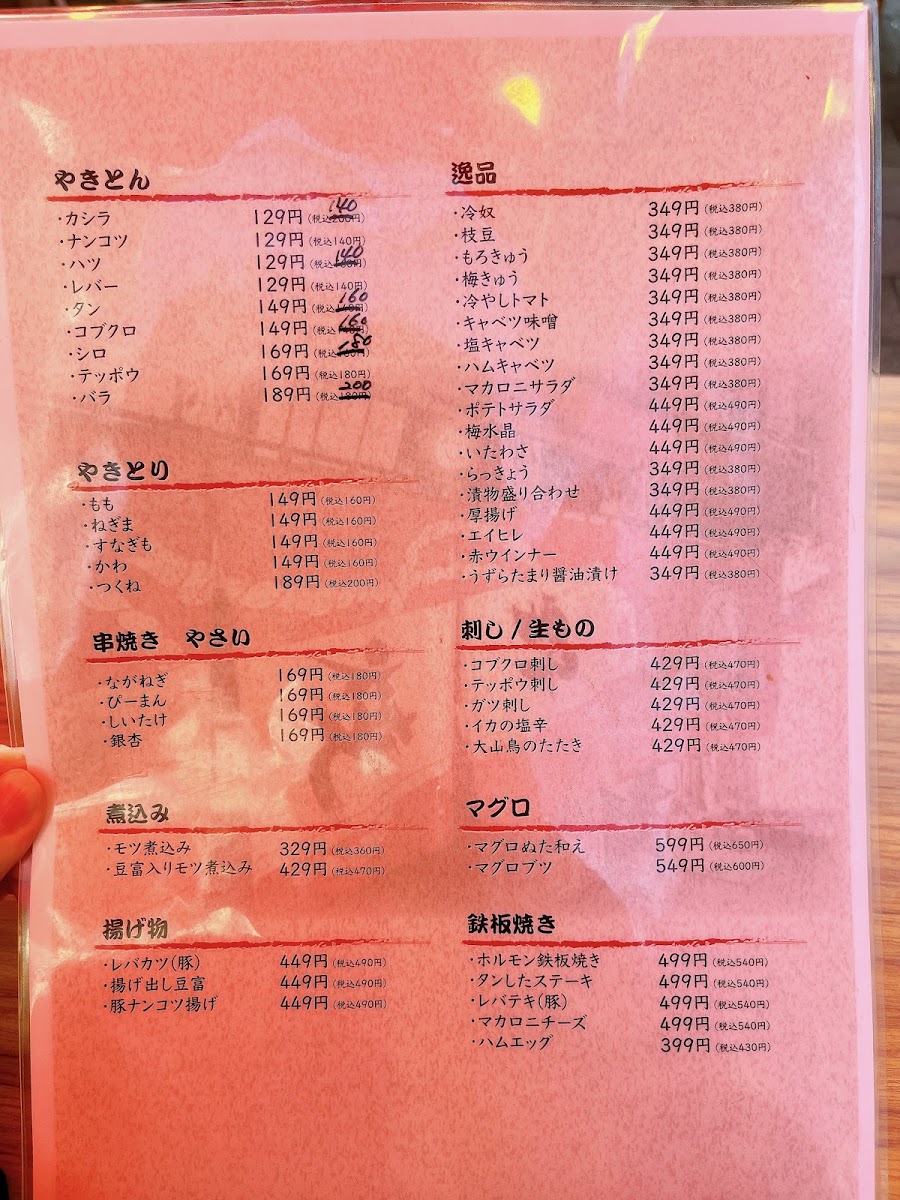 やきとん
・カシラ 129円(税込200円) 140
・ナンコツ 129円(税込140円)
・ハツ 129円(税込 円) 140
・レバー 129円(税込140円)
・タン 149円(税込140円) 160
・コブクロ 149円(税込 円) 160
・シロ 169円(税込160円) 180
・テッポウ 169円(税込180円)
・バラ 189円(税込180円) 200
やきとり
・もも 149円(税込160円)
・ねぎま 149円(税込160円)
・すなぎも 149円(税込160円)
・かわ 149円(税込160円)
・つくね 189円(税込200円)
串焼き やさい
・ながねぎ 169円(税込180円)
・ぴーまん 169円(税込180円)
・しいたけ 169円(税込180円)
・銀杏 169円(税込180円)
煮込み
・モツ煮込み 329円(税込360円)
・豆富入りモツ煮込み 429円(税込470円)
揚げ物
・レバカツ(豚) 449円(税込490円)
・揚げ出し豆富 449円(税込490円)
・豚ナンコツ揚げ 449円(税込490円)
逸品
・冷奴 349円(税込380円)
・枝豆 349円(税込380円)
・もろきゅう 349円(税込380円)
・梅きゅう 349円(税込380円)
・冷やしトマト 349円(税込380円)
・キャベツ味噌 349円(税込380円)
・塩キャベツ 349円(税込380円)
・ハムキャベツ 349円(税込380円)
・マカロニサラダ 349円(税込380円)
・ポテトサラダ 449円(税込490円)
・梅水晶 449円(税込490円)
・いたわさ 449円(税込490円)
・らっきょう 349円(税込380円)
・漬物盛り合わせ 349円(税込380円)
・厚揚げ 449円(税込490円)
・エイヒレ 449円(税込490円)
・赤ウインナー 449円(税込490円)
・うずらたまり醤油漬け 349円(税込380円)
刺し/生もの
・コブクロ刺し 429円(税込470円)
・テッポウ刺し 429円(税込470円)
・ガツ刺し 429円(税込470円)
・イカの塩辛 429円(税込470円)
・大山鳥のたたき 429円(税込470円)
マグロ
・マグロぬた和え 599円(税込650円)
・マグロブツ 549円(税込600円)
鉄板焼き
・ホルモン鉄板焼き 499円(税込540円)
・タンしたステーキ 499円(税込540円)
・レバテキ(豚) 499円(税込540円)
・マカロニチーズ 499円(税込540円)
・ハムエッグ 399円(税込430円)